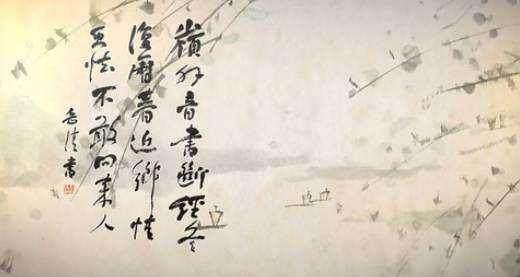 嶺外音書斷經冬
復歷春近鄉情
更怯不敢問來人
書